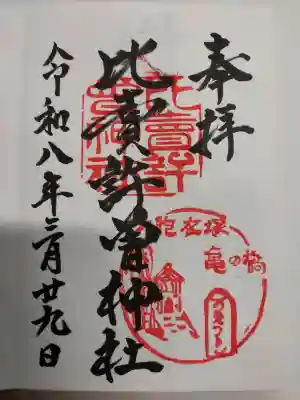 奉拝
比賣許曽神社
令和八年三月廿九日
比賣許曽神社
胞衣塚
亀の橋